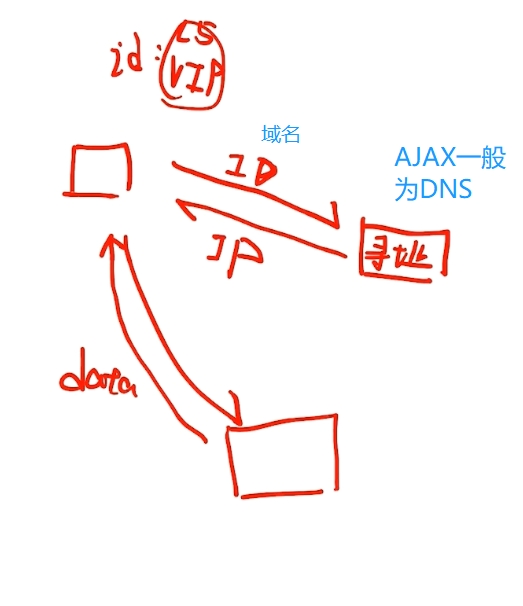 id:
CS
VIP
域名
ID
AJAX一般
为DNS
IP
寻址
data